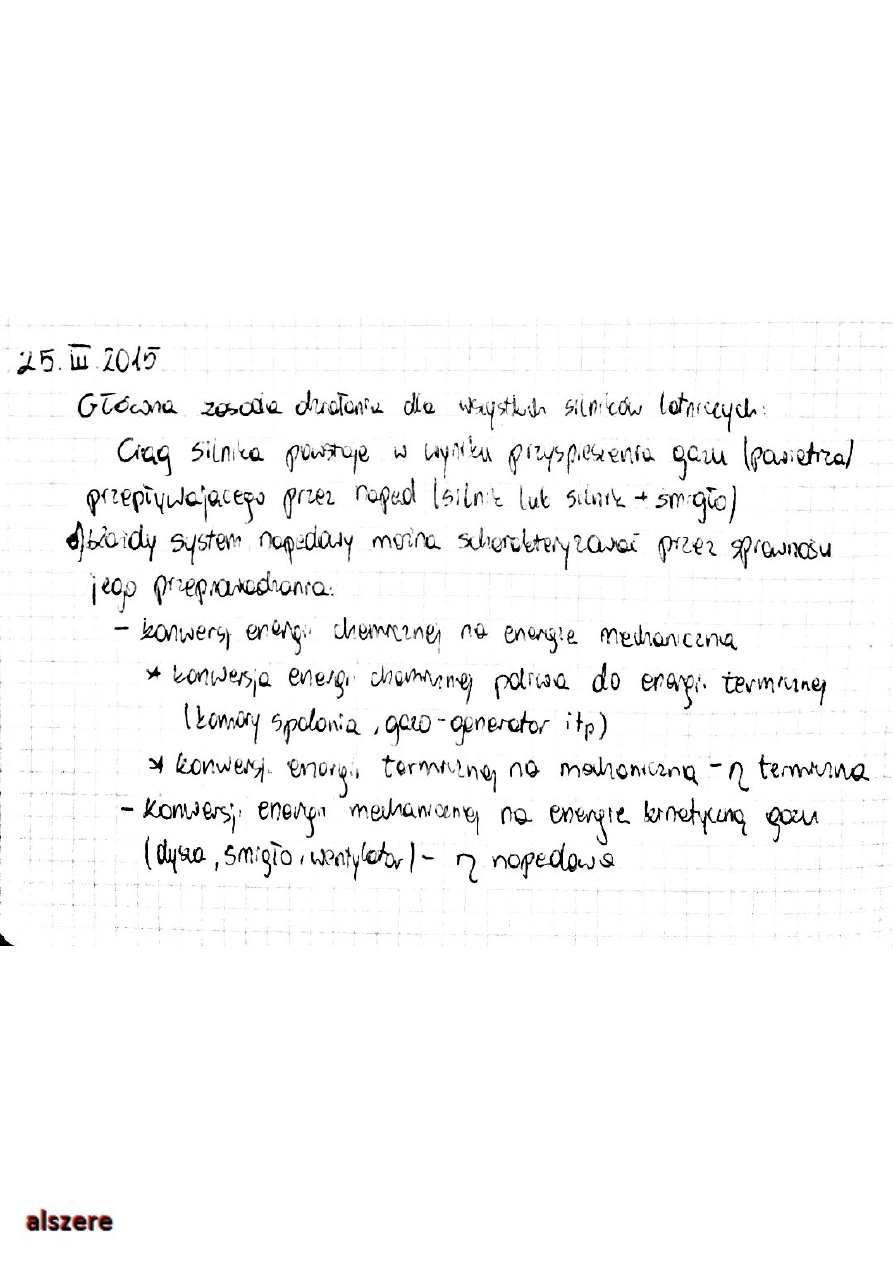 25.III.2015
Główna zasada działania dla wszystkich silników lotniczych:
Ciąg silnika powstaje w wyniku przyspieszenia gazu (powietrza)
przepływającego przez napęd (silnik lub silnik + śmigło)
Każdy system napędowy można scharakteryzować przez sprawności
jego przeprowadzania:
- konwersji energii chemicznej na energie mechaniczna
* konwersja energii chemicznej paliwa do energii termicznej
(komory spalania, gazo-generator itp)
* konwersji energii termicznej na mechaniczną - η termiczna
- konwersji energii mechanicznej na energie kinetyczną gazu
(dysza, śmigło, wentylator) - η napędowa
alszere